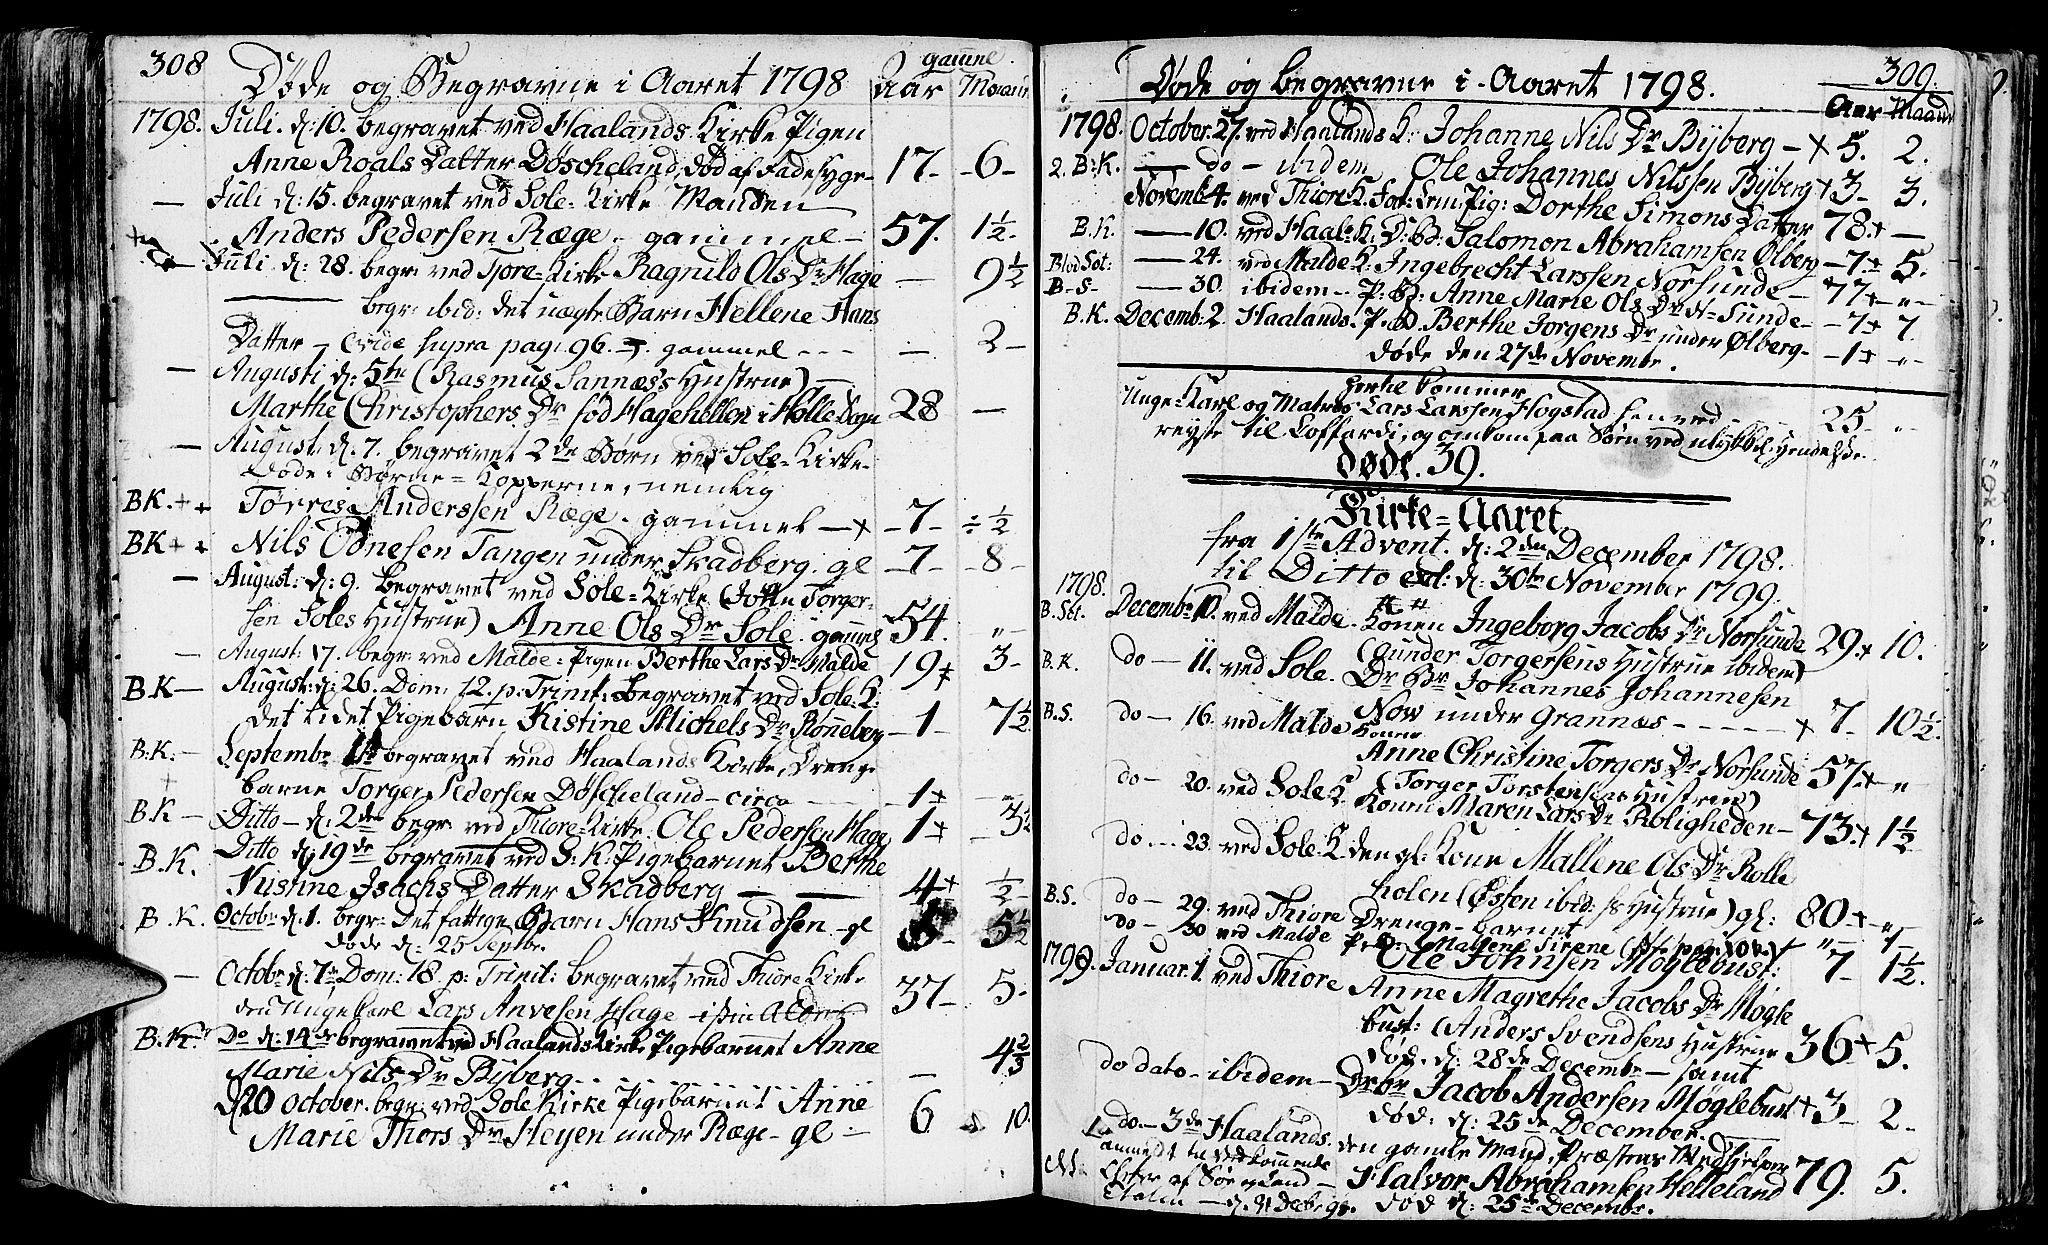 308
Døde og Begravne i Aaret 1798
gamle
Aar Maan
1798. Juli. d: 10. begravet ved Haalands Kirke Pigen
Anne Roals Datter Døscheland, død af 17 - 6 -
Juli d: 15. begravet ved Sole-Kirke Manden
Anders Pedersen Ræge - gammel - 57. 1½ -
Juli d: 28. begr: ved Tjore-Kirke Ragnild Ols Dr Hage - 9½
begr: ibid: det uægte Barn Hellene Hans
Datter - (vide supra pag: 96. gammel - - - 2 -
- Augusti d: 5te (Rasmus Sannæs's Hustrue)
Marthe Christophers Dr fød Hagehellen i Holle Sogn 28 -
- August: d: 7. begravet 2de Børn ved Sole-Kirke
Døde i Børne=Kopperne, nemlig
BK. + + Tørres Anderssen Ræge. gammel - + - 7 - ÷ ½
BK + + Nils Odnesen Tangen under Skadberg. gl - 7 - - 8 -
- August: d: 9. begravet ved Sole=Kirke (John Torger-
sen Soles Hustrue) Anne Ols Dr Sole gammel 54. "
- August: 17. begr: ved Malde - Pigen Berthe Lars Dr Malde 19+ 3 -
BK - August: d: 26. Dom: 12. p: Trinit: begravet ved Sole K:
det lidet Pigebarn Kistine Michels Dr Rønneberg - 1 - 7½
B.K. - Septembr 1te begravet ved Haalands Kirke, Drenge
barne Torger Pedersen Døscheland - circa - 1+ "
B.K - Ditto - d: 2den begr ved Thiore-Kirke. Ole Pedersen Hage 1+ - 3½
B.K. Ditto d: 19de begravet ved S: K: Pigebarnet Berthe
Kistine Isachs Datter Skadberg - - 4+ ½ -
B.K. Octobr d: 1. begr: det fattige Barn Hans Knudsen - gl 5½
døde d: 25 Septbr.
- Octobr d: 7de Dom: 18. p: Trinit: begravet ved Thiore Kirke
den Ungekarl Lars Anvesen Hage - i sin Alder 37 - 5 -
B.K. Do d: 14de begravet ved Haalands Kirke Pigebarnet Anne
Marie Nils Dr Byberg - 4⅔
d 20 October. begr: ved Sole Kirke Pigebarnet Anne
Marie Thors Dr Heyen under Ræge - gl - 6 10.
309.
Døde og begravne i Aaret 1798.
Aar Maaned
1798. October. 27. ved Haalands K: Johanne Nils Dr Byberg - + 5. 2.
2. B.K. - do - ibidem Ole Johannes Nilssen Byberg + 3 - 3.
Novemb: 4. ved Thiore K. Pig: Dorthe Simons Datter 78.+ -
B.K. - 10. ved Haal: K: D: B: Salomon Abrahamsen Ølberg - 7+ 5.
Blod Sot: - 24. ved Malde K: Ingebrecht Larssen Norsunde - 77+ "
B - S - - 30. ibidem - P: B: Anne Marie Ols Dr N=Sunde - - 7+ 7.
B.K. Decemb: 2. Haalands. P. B. Berthe Jorgens Dr under Ølberg - - 1+ "
døde den 27de Novembr.
Sommer
Unge-Karl og Matros Lars Larssen Hogstad 25 - "
reyste til Koffardi, og omkom paa Søen ved ulykkel. Hendelse
Døde. 39.
Kirke=Aaret
fra 1ste Advent. d: 2den December 1798.
til Ditto d: 30te November 1799.
1798.
B. Sot. Decembr 10. ved Malde. Konen Ingeborg Jacobs Dr Norsunde 29.+ 10.
(Gunder Torgersens Hustrue ibidem)
B.K. do - 11. ved Sole. Dr Br Johannes Johannesen
Now under Grannæs - - - - - + 7 - 10½.
B.S. do - 16. ved Malde Konen
Anne Christine Torgers Dr Norsunde 57+ "
(Torger Torstensens Hustrue)
do - 20. ved Sole K. Konen Maren Lars Dr Roligheden - 73.+ 1½
do - 23. ved Sole K. den gl: Kone Mallene Ols Dr Rolle
holen (Østen ibid:s Hustrue) gl: 80+ "
B.S. do - 29. ved Thiore Drenge-barnet
do - 30 ved Malde P: B: Mallene Sirene " 1 -
Ole Johnsen Møglebust: 7 - 1½.
1799. Januar. 1. ved Thiore Anne Magrethe Jacobs Dr Møgle
bust: (Anders Svendsens Hustrue 36+ 5.
død. d: 28de Decembr - samt
do dato - ibidem - Dr br Jacob Andersen Møglebust + 3 - 2 -
død: d: 25de December.
do - 3de Haalands. den gamle Mand, Præstens Medhjelper
Halvor Abrahamsen Helleland 79. 5.
død d: 25de Decembr.